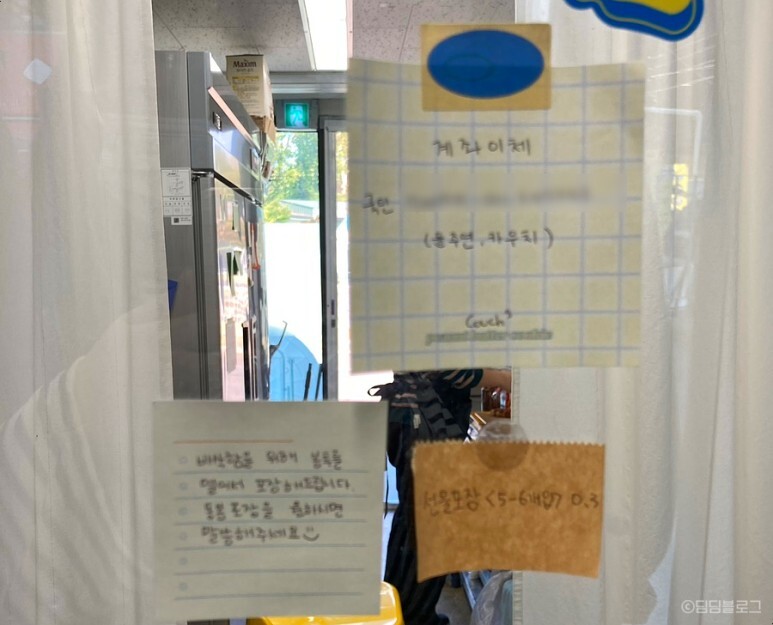 Maxim
계좌이체
국민
(윤주연, 카우치)
Couch³
peanut butter cookie
바삭함을 위해 봉투를
열어서 포장해드립니다.
밀봉포장을 원하시면
말씀해주세요
선물포장 <5-6개입> 0.3
©딤딤블로그